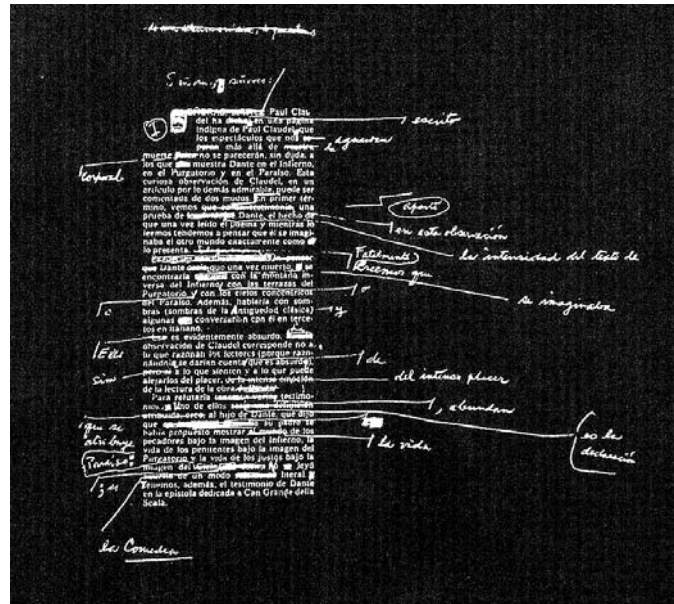 Señoras, señores:
I
Paul Clau-
del ha escrito en una página
indigna de Paul Claudel que
los espectáculos que nos aguardan
más allá de
muerte corporal no se parecerán, sin duda, a
los que muestra Dante en el Infierno,
en el Purgatorio y en el Paraíso. Esta
curiosa observación de Claudel, en un
artículo por lo demás admirable, puede ser
comentada de dos modos. En primer tér-
mino, vemos que una
prueba de Dante, el hecho de
que una vez leído el poema y mientras lo
leemos tendemos a pensar que él se imagi-
naba el otro mundo exactamente como
lo presenta.
que Dante que una vez muerto, se
encontraría con la montaña in-
versa del Infierno con las terrazas del
Purgatorio y con los cielos concéntricos
del Paraíso. Además, hablaría con som-
bras (sombras de la Antigüedad clásica)
algunas conversarían con él en terce-
tos en italiano.
es evidentemente absurdo.
observación de Claudel corresponde no a
lo que razonan los lectores (porque razo-
nándolo se darían cuenta que es absurdo),
a lo que sienten y a lo que puede
alejarlos del placer, de la intensa emoción
de la lectura de la obra
Para refutarla varios testimo-
nios. Uno de ellos
al hijo de Dante, que dijo
que su padre se
había propuesto mostrar el mundo de los
pecadores bajo la imagen del Infierno, la
vida de los penitentes bajo la imagen del
Purgatorio y la vida de los justos bajo la
imagen del No leyó
de un modo literal
Tenemos, además, el testimonio de Dante
en la epístola dedicada a Can Grande della
Scala.
escrito
aguardan
corporal
aporta
en esta observación
la intensidad del texto de
Fatalmente
creemos que
o
se imaginaba
o
y
Esto
de
sino
del intenso placer
, abundan
que se
atribuye
es la
declaración
Paraíso:
la vida
y
la Comedia